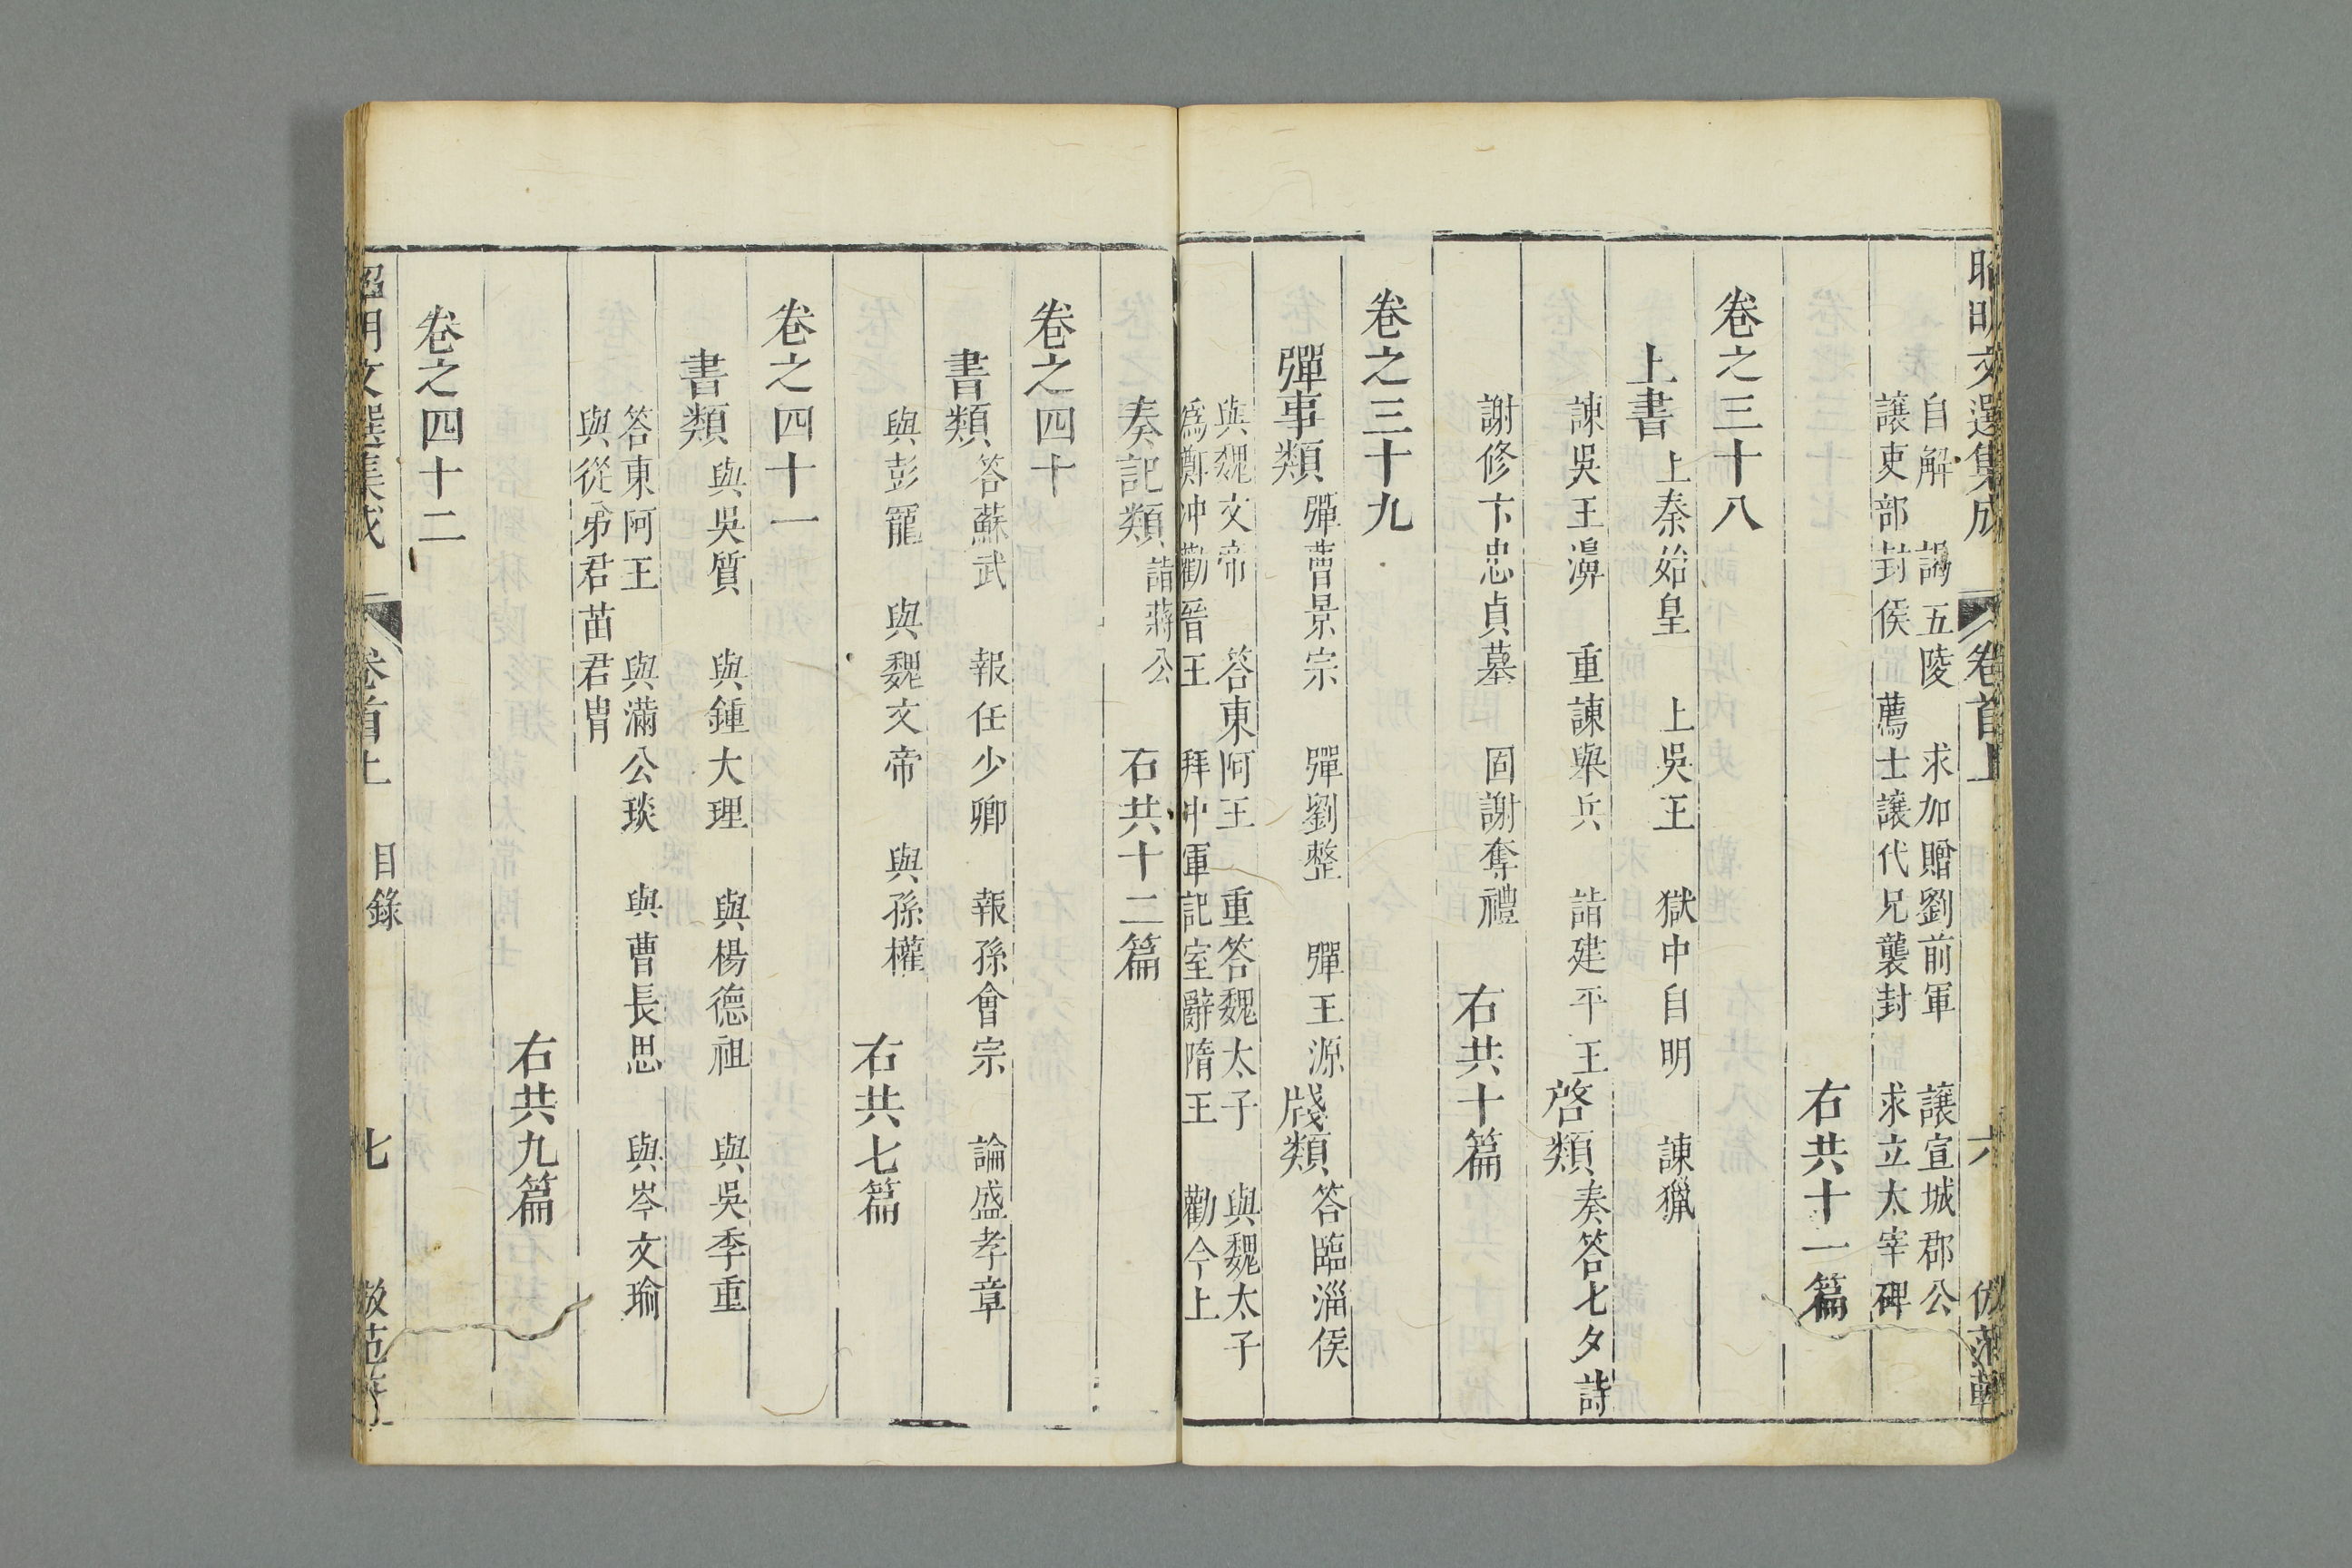 昭明文選集成 卷首上 六
自解 謁五陵 求加贈劉前軍 讓宣城郡公
讓吏部封侯 薦士讓代兄襲封 求立太宰碑
右共十一篇
卷之三十八
上書 上秦始皇 上吳王 獄中自明 諫獵
諫吳王濞 重諫舉兵 詣建平王 啓類 奏答七夕詩
謝修卞忠貞墓 固謝奪禮 右共十篇
卷之三十九
彈事類 彈曹景宗 彈劉整 彈王源 牋類 答臨淄侯
與魏文帝 答東阿王 重答魏太子 與魏太子
爲鄭冲勸晉王 拜中軍記室辭隋王 勸今上
奏記類 詣蔣公 右共十二篇
卷之四十
書類 答蘇武 報任少卿 報孫會宗 論盛孝章
與彭寵 與魏文帝 與孫權 右共七篇
卷之四十一
書類 與吳質 與鍾大理 與楊德祖 與吳季重
答東阿王 與滿公琰 與曹長思 與岑文瑜
與從弟君苗君冑
右共九篇
卷之四十二
昭明文選集成 卷首上 目錄 七